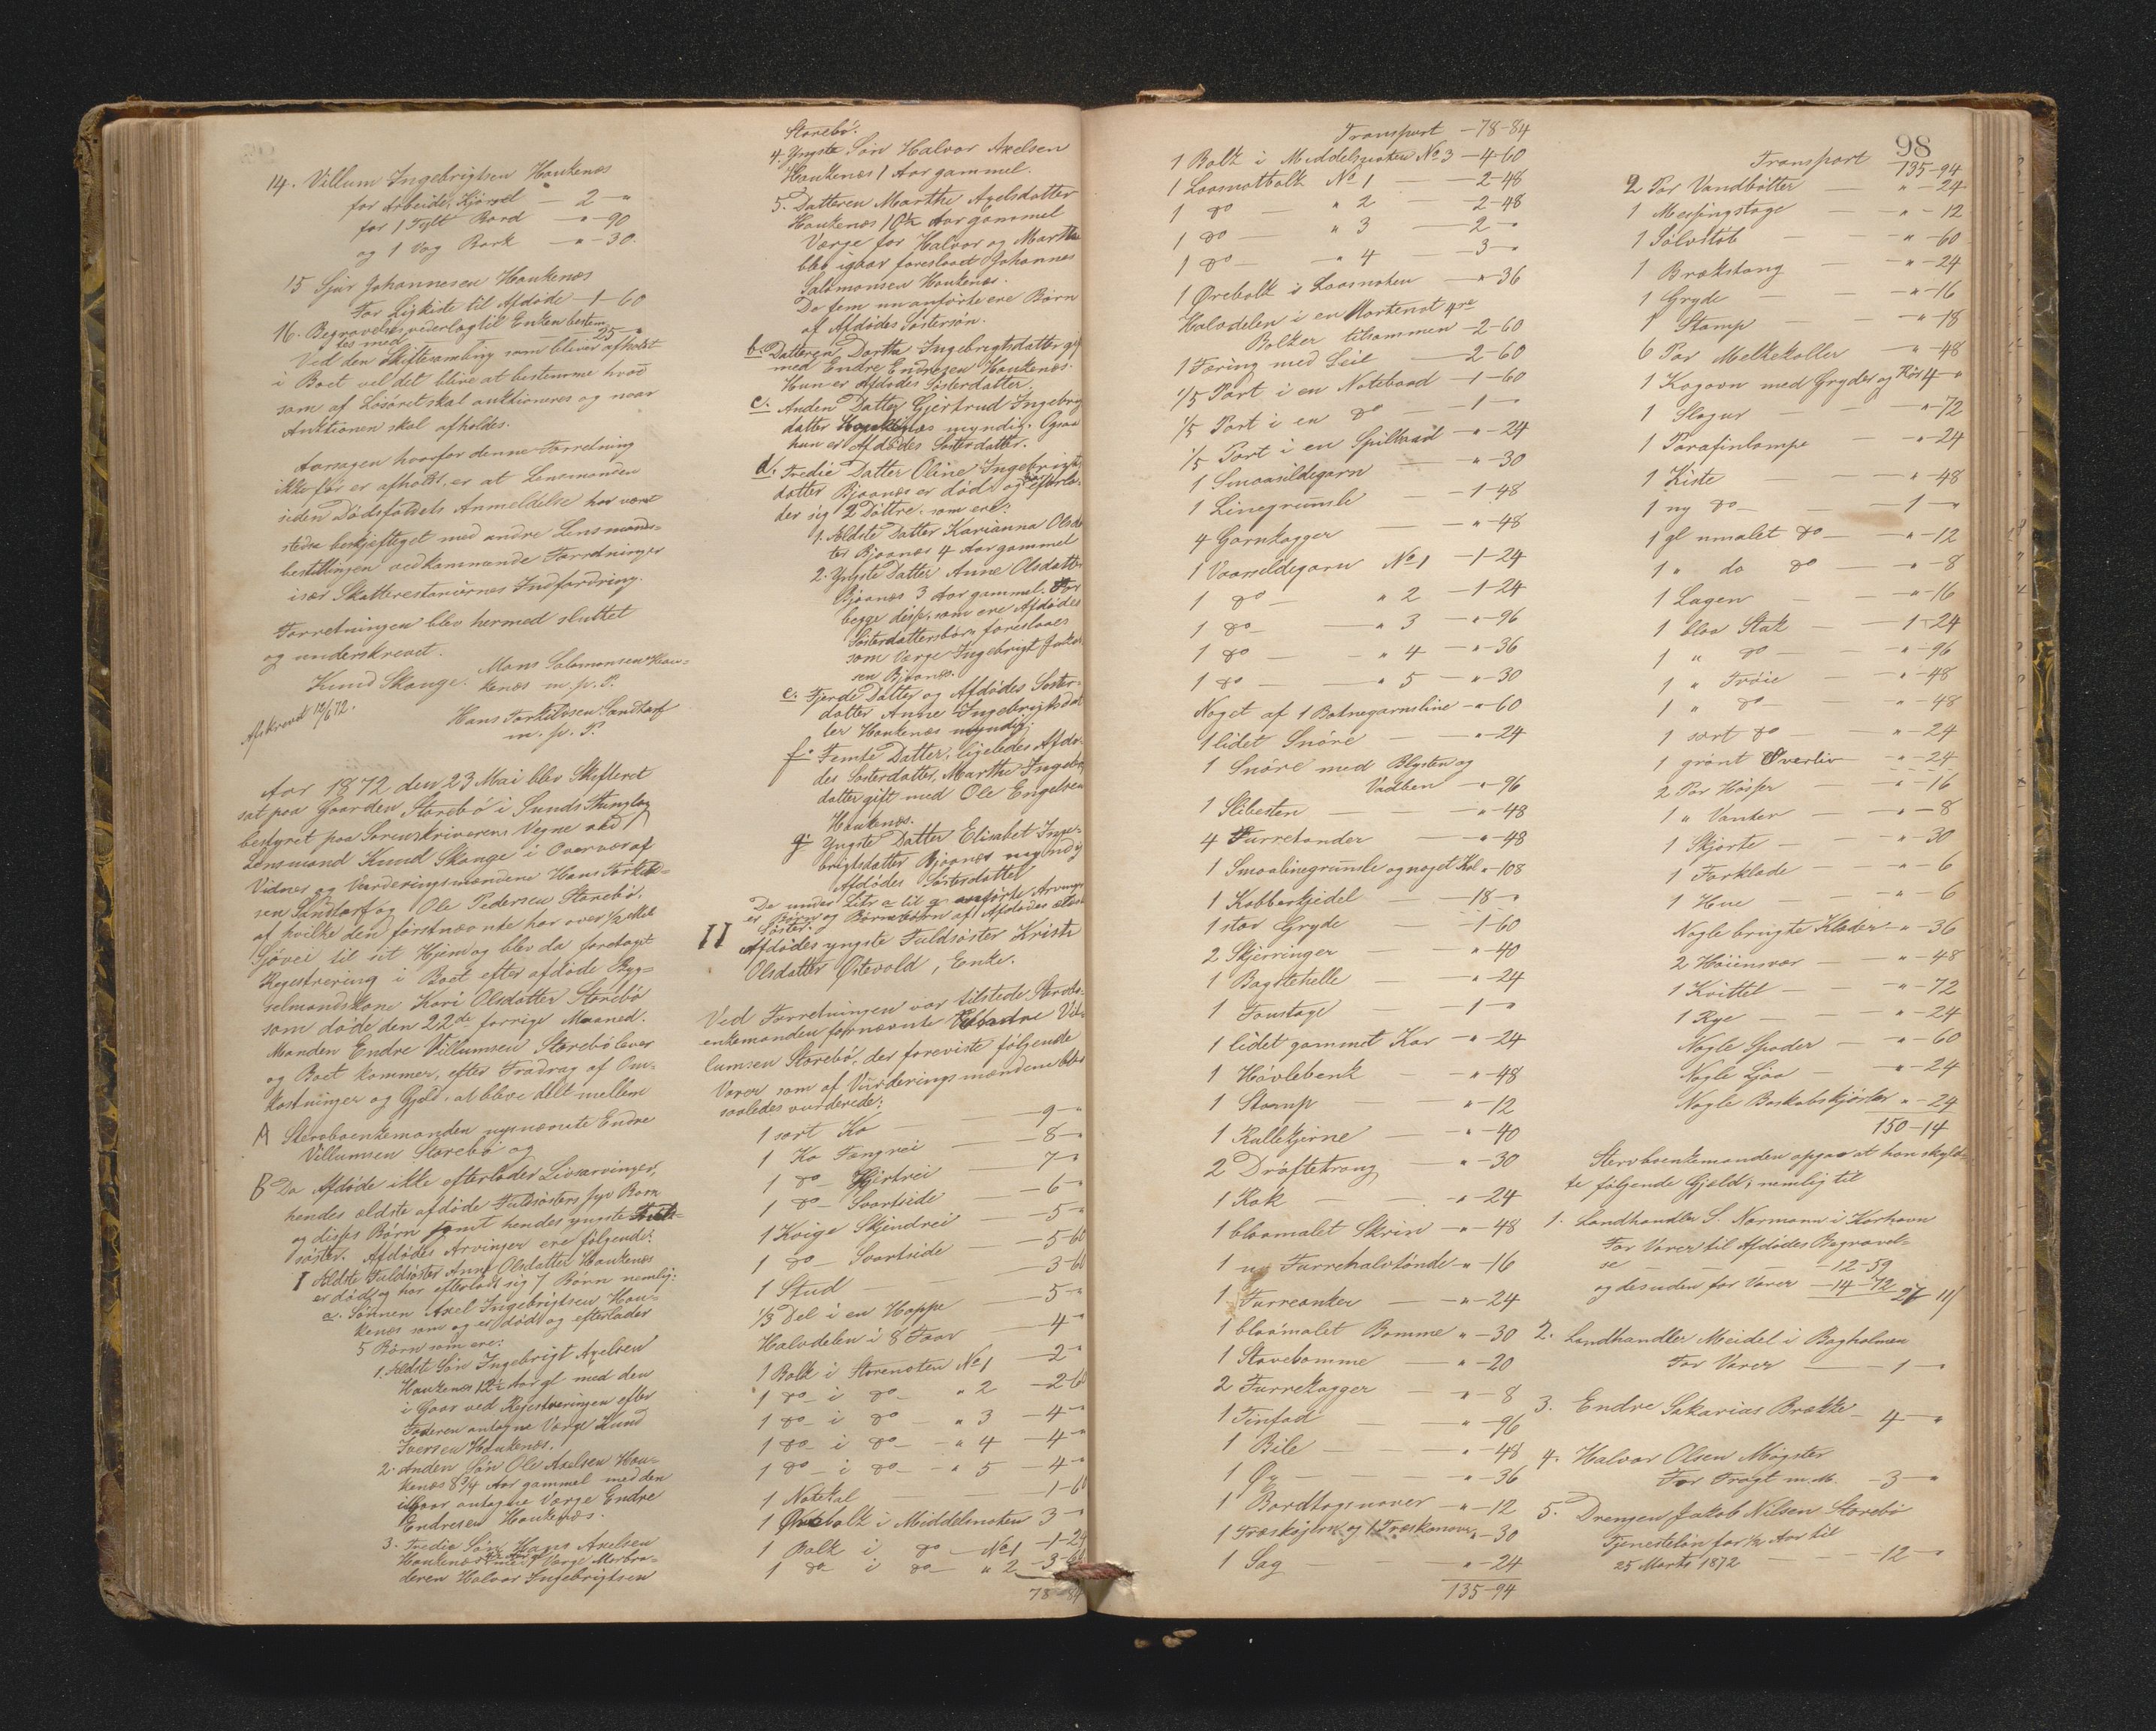 14. Villum Ingebrigtsen Haukenæs
for Arbeide, Kjørsel — 2 — "
for 1 Tylt Bord — " — 90
og 1 Vog Bark — " — 30.
15 Sjur Johannesen Haukenæs
For Ligkiste til Afdøde — 1 — 60
16. Begravelsesvederlag til Enken bestem
tes med — 25 — "
Ved den Skiftesamling som bliver afholdt
i Boet vil det blive at bestemme hvad
som af Løsøret skal auktioneres og naar
Auktionen skal afholdes.
Aarsagen hvorfor denne Forretning
ikke før er afholdt, er at Lensmanden
siden Dødsfaldets Anmeldelse har været
stedse beskjæftiget med andre Lensmands-
bestillingen vedkommende Forretninger
især Skatterestancernes Indfordring.
Forretningen blev hermed sluttet
og underskrevet.
Knud Skauge. Mons Salomonsen Hau-
kenæs m. p. P.
Hans Torkildsen Sandtorf
m. p. P.
Afskrevet 12/6 72.
Aar 1872 den 23 Mai blev Skifteret
sat paa Gaarden Storebø i Sunds Thinglag
bestyret paa Sorenskriverens Vegne ved
Lensmand Knud Skauge i Overvær af
Vidner og Vurderingsmændene Hans Torkild-
sen Sandtorf og Ole Pedersen Storebø,
af hvilke den førstnævnte har over 1/2 Mil
Sjøvei til sit Hjem og blev da foretaget
Registrering i Boet efter afdøde Byg-
selmandskone Kari Olsdatter Storebø
som døde den 22de forrige Maaned.
Manden Endre Villumsen Storebø lever
og Boet kommer, efter Fradrag af Om-
kostninger og Gjæld, at blive delt mellem
A Stervboenkemanden nysnævnte Endre
Villumsen Storebø og
B Da Afdøde ikke efterlader Livsarvinger,
hendes ældste afdøde Fuldsøsters syv Børn
og disses Børn samt hendes yngste Fuld-
søster. Afdødes Arvinger ere følgende:
I Ældste Fuldsøster Anne Olsdatter Haukenæs
er død og har efterladt sig 7 Børn nemlig:
a. Sønnen Axel Ingebrigtsen Hau-
kenæs som og er død og efterlader
5 Børn som ere:
1. Ældste Søn Ingebrigt Axelsen
Haukenæs 12 1/2 Aar gl med den
i Gaar ved Registreringen efter
Faderen antagne Værge Knud
Iversen Haukenæs.
2. Anden Søn Ole Axelsen Hau-
kenæs 8 3/4 Aar gammel med den
igaar antagne Værge Endre
Endresen Haukenæs.
3. Tredie Søn Hans Axelsen
Haukenæs med Værge Morbro-
deren Halvor Ingebrigtsen
Storebø.
4. Yngste Søn Halvor Axelsen
Haukenæs 1 Aar gammel.
5. Datteren Marthe Axelsdatter
Haukenæs 10 1/2 Aar gammel
Værge for Halvor og Marthe
blev igaar foreslaaet Johannes
Salomonsen Haukenæs.
De fem nu anførte ere Børn
af Afdødes Søstersøn.
b. Datteren Dorthe Ingebrigtsdatter gift
med Endre Endresen Haukenæs.
Hun er Afdødes Søsterdatter.
c. Anden Datter Gjertrud Ingebrigts
datter Haukenæs myndig. Ogsaa
hun er Afdødes Søsterdatter.
d. Tredie Datter Oline Ingebrigts
datter Bjaanæs er død og har efterla-
der sig 2 Døttre som ere:
1. Ældste Datter Karianna Olsdat
ter Bjaanæs 4 Aar gammel
2. Yngste Datter Anne Olsdatter
Bjaanæs 3 Aar gammel. For
begge disse, som ere Afdødes
Søsterdatters børn foreslaaes
som Værge Ingebrigt Jakob
sen Bjaanæs.
e. Fjerde Datter og Afdødes Søster-
datter Anne Ingebrigtsdat
ter Haukenæs myndig.
f. Femte Datter, ligeledes Afdø-
des Søsterdatter, Marthe Ingebrigts
datter gift med Ole Engelsen
Haukenæs.
g. Yngste Datter Elisabet Inge-
brigtsdatter Bjaanæs myndig
Afdødes Søsterdatter
De under Litr a til g anførte Arvinger
er Børn og Børnebørn af Afdødes ældste
Søster.
II Afdødes yngste Fuldsøster Kristi
Olsdatter Østevold, Enke.
Ved Forretningen var tilstede Stervbo-
enkemanden fornævnte Endre Vil-
lumsen Storebø, der foreviste følgende
Varer som af Vurderingsmændene blev
saaledes vurderede:
1 sort Ko — 9 — "
1 Ko Fangrei — 8 — "
1 do Hjertrei — 7 — "
1 do Svartside — 6 — "
1 Kvige Skjendrei — 5 — "
1 do Svartside — 5 — 60
1 Stud — 3 — 60
1/3 Del i en Hoppe — 5 — "
Halvdelen i 8 Faar — 4 — "
1 Bolk i Storenoten No 1 — 2 — "
1 do i do " 2 — 2 — 60
1 do i do " 3 — 4 — "
1 do i do " 4 — 4 — "
1 do i do " 5 — 4 — "
1 Notekal — 1 — 60
1 Ørebolk i Middelnoten 3 — "
1 Bolk i do No 1 — 1 — 24
1 do i do " 2 — 3 — 60
78 — 84
98
Transport — 78 — 84
1 Bolk i Middelnoten No 3 — 4 — 60
1 Laasnotbolk No 1 — 2 — 48
1 do " 2 — 2 — 48
1 do " 3 — 2 — "
1 do " 4 — 3 — "
1 Ørebolk i Laasnoten — " — 36
Halvdelen i en Mortenot 4re
Bolker tilsammen — 2 — 60
1 Færing med Seil — 2 — 60
1/5 Part i en Notebaad — 1 — 60
1/5 Part i en do — 1 — "
1/5 Part i en Spilbaad — " — 24
1 Smaasildegarn — " — 30
1 Linegrumle — 1 — 48
4 Garnkagger — " — 48
1 Vaarsildegarn No 1 — 1 — 24
1 do " 2 — 1 — 24
1 do " 3 — " — 96
1 do " 4 — " — 36
1 do " 5 — " — 30
Noget af 1 Botnegarnsline — " — 60
1 lidet Snøre — " — 24
1 Snøre med Blysten og
Vadben — " — 96
1 Slibesten — " — 48
4 Furretønder — " — 48
1 Smaalinegrumle og noget Kol " — 108
1 Kobberkjedel — 18 — "
1 stor Gryde — 1 — 60
2 Skjerringer — " — 40
1 Bagstehelle — " — 24
1 Faustage — 1 — "
1 lidet gammelt Kar — " — 24
1 Høvlebenk — " — 48
1 Stamp — " — 12
1 Rullekjerne — " — 40
2 Drøftetroug — " — 30
1 Rok — " — 24
1 blaamalet Skrin — " — 48
1 Furrehalvtønde — " — 16
1 Furreanker — " — 24
1 blaamalet Bomme " — 30
1 Stavebomme — " — 20
2 Furrekagger — " — 8
1 Tinfad — " — 96
1 Bile — " — 48
1 Øx — " — 36
1 Bordtagsnaver — " — 12
1 Træskojern og 1 Træskonaver " — 30
1 Sag — " — 24
135 — 94
Transport 135 — 94
2 Par Vandbøtter — " — 24
1 Messingstage — " — 12
1 Sølvstob — " — 60
1 Brækstang — " — 24
1 Gryde — " — 16
1 Stamp — " — 18
6 Par Melkekoller — " — 48
1 Kogovn med Gryder og Rør 4 — "
1 Slagur — " — 72
1 Parafinlampe — " — 24
1 Kiste — " — 48
1 ny do — 1 — "
1 gl umalet do — " — 12
1 " do do — " — 8
1 Lagen — " — 16
1 blaa Stak — 1 — 24
1 " do — " — 96
1 " Trøie — " — 48
1 " do — " — 48
1 sort do — " — 24
1 grønt Overliv — " — 24
2 Par Hoser — " — 16
1 " Vanter — " — 8
1 Skjorte — " — 30
1 Forklæde — " — 6
1 Hue — " — 6
Nogle brugte Klæder — " — 36
2 Høiensvær — " — 48
1 Kvittel — " — 72
1 Rye — " — 24
Nogle Spader — " — 60
Nogle Ljaa — " — 24
Nogle Boskabskjørler " — 24
150 — 14
Stervboenkemanden opgav at han skyld-
te følgende Gjæld, nemlig til
1. Landhandler S. Normann i Korshavn
For Varer til Afdødes Begravel-
se — 12 — 59
og desuden for Varer — 14 — 72 27 — 11
2. Landhandler Meidel i Bagholmen
For Varer — 1 — "
3. Endre Sakarias Brække — 4 — "
4. Halvor Olsen Møgster
For Fragt m. M. — 3 — "
5. Drengen Jakob Nilsen Storebø
Tjenesteløn for 1/2 Aar til
25 Marts 1872 — 12 — "